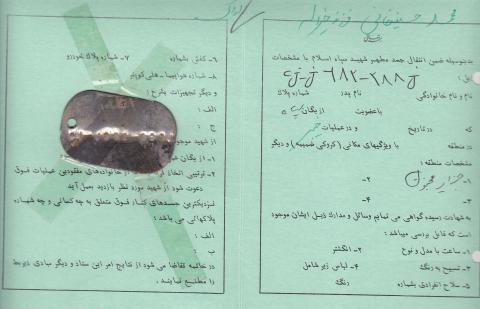 محمد حسین
بدینوسیله ضمن انتقال جسد مطهر شهید سپاه اسلام با مشخصات
ذیل :
نام و نام خانوادگی نام پدر شماره پلاک
با عضویت از یگان
که در تاریخ و در عملیات خیبر
در منطقه با ویژگیهای مکانی (کروکی ضمیمه) و دیگر
مشخصات منطقه :
۱- جزایر مجنون ۲-
۳- ۴-
به شهادت رسیده گواهی می نمایم وسائل و مدارک ذیل ایشان موجود
است که قابل بررسی میباشد :
۱- ساعت با مدل و نوع ۲- انگشتر
۳- تسبیح به رنگ ۴- لباس زیر شامل
۵- سلاح انفرادی بشماره رنگ
۶- کفش بشماره ۷- شماره پلاک خودرو
۸- شماره هواپیما - هلی کوپتر
و دیگر تجهیزات بشرح :
الف :
ج :
از شهید موجود
۱- از یگان
۲- ترتیبی اتخاذ از خانواده‌های مفقودین عملیات فوق
دعوت شود از شهید مورد نظر بازدید بعمل آید
نزدیکترین جسدهای کنار فوق متعلق به چه کسانی و چه شماره
پلاکهائی می باشد :
الف :
ب :
در خاتمه تقاضا می شود از نتایج امر این ستاد و دیگر مبادی ذیربط
را مطلع نمایند .